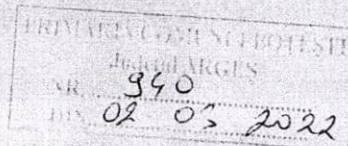 PRIMĂRIA COMUNEI BOTEȘTI
Județul ARGEȘ
NR. 940
DIN 02 03 2022